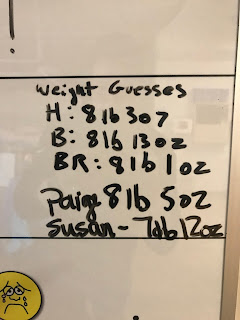 weight Guesses
H: 8lb 3oz
B: 8lb 13oz
BR: 8lb 1oz
Paige 8lb 5oz
Susan- 7lb 12oz